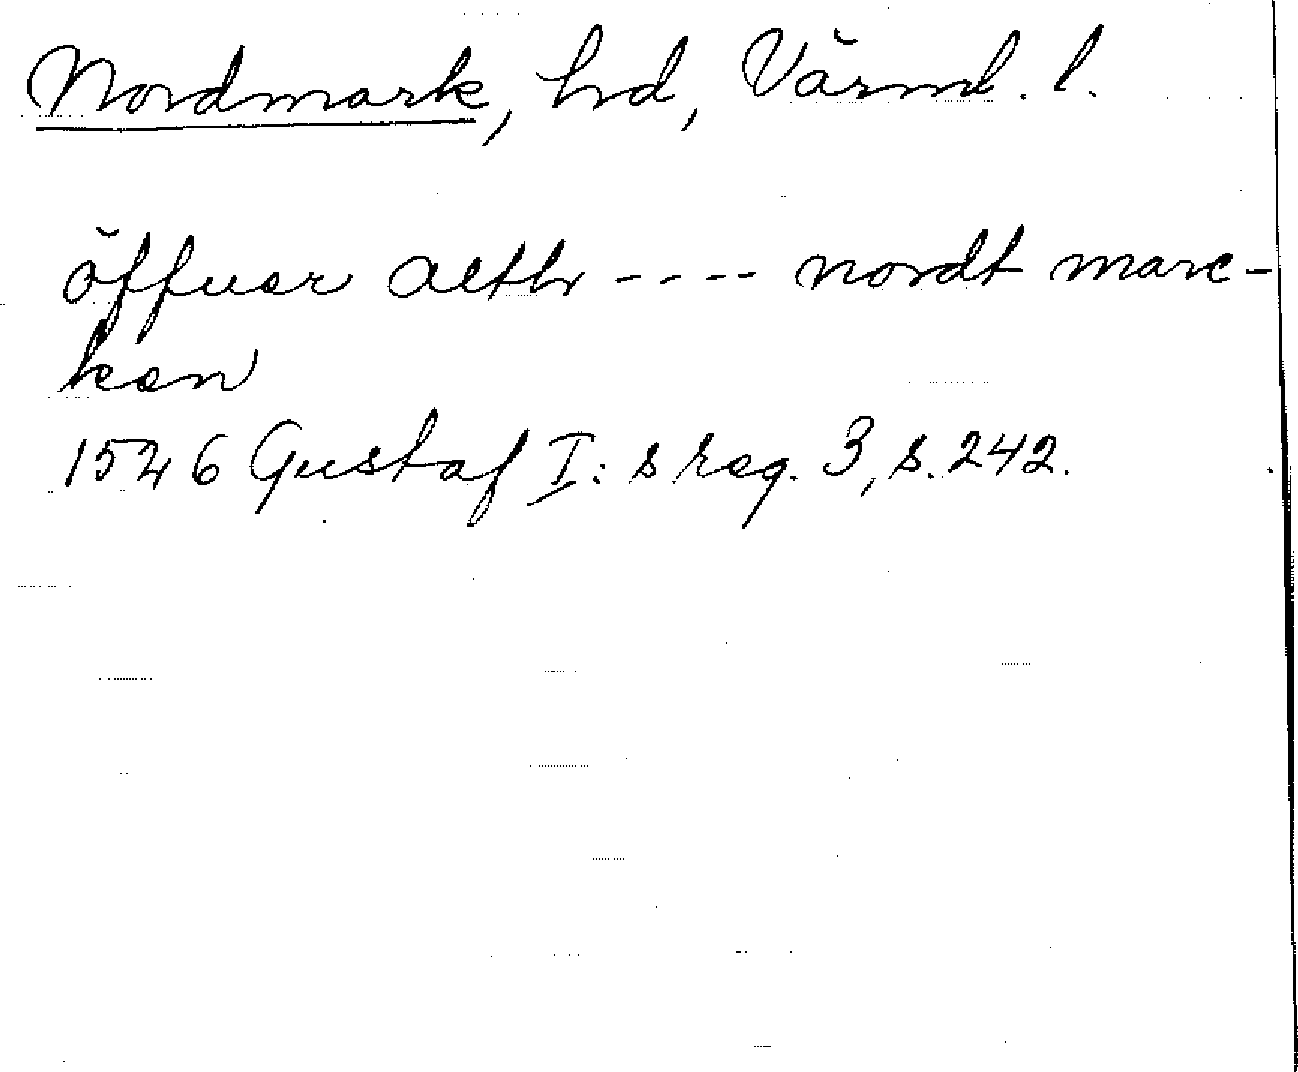 Nordmark, hd, Värml. l.
öffuer alth ---- nordt marc-
ken
1526 Gustaf I:s reg. 3, s. 242.